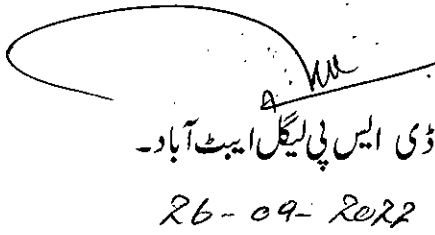 ڈی ایس پی لیگل ایبٹ آباد۔
26-09-2022